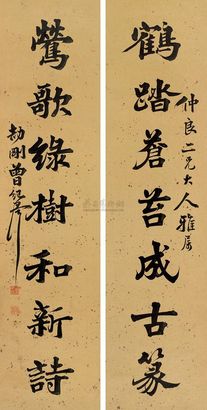 鶴踏蒼苔成古篆
仲良二兄大人雅屬
鶯歌綠樹和新詩
劼剛曾紀澤